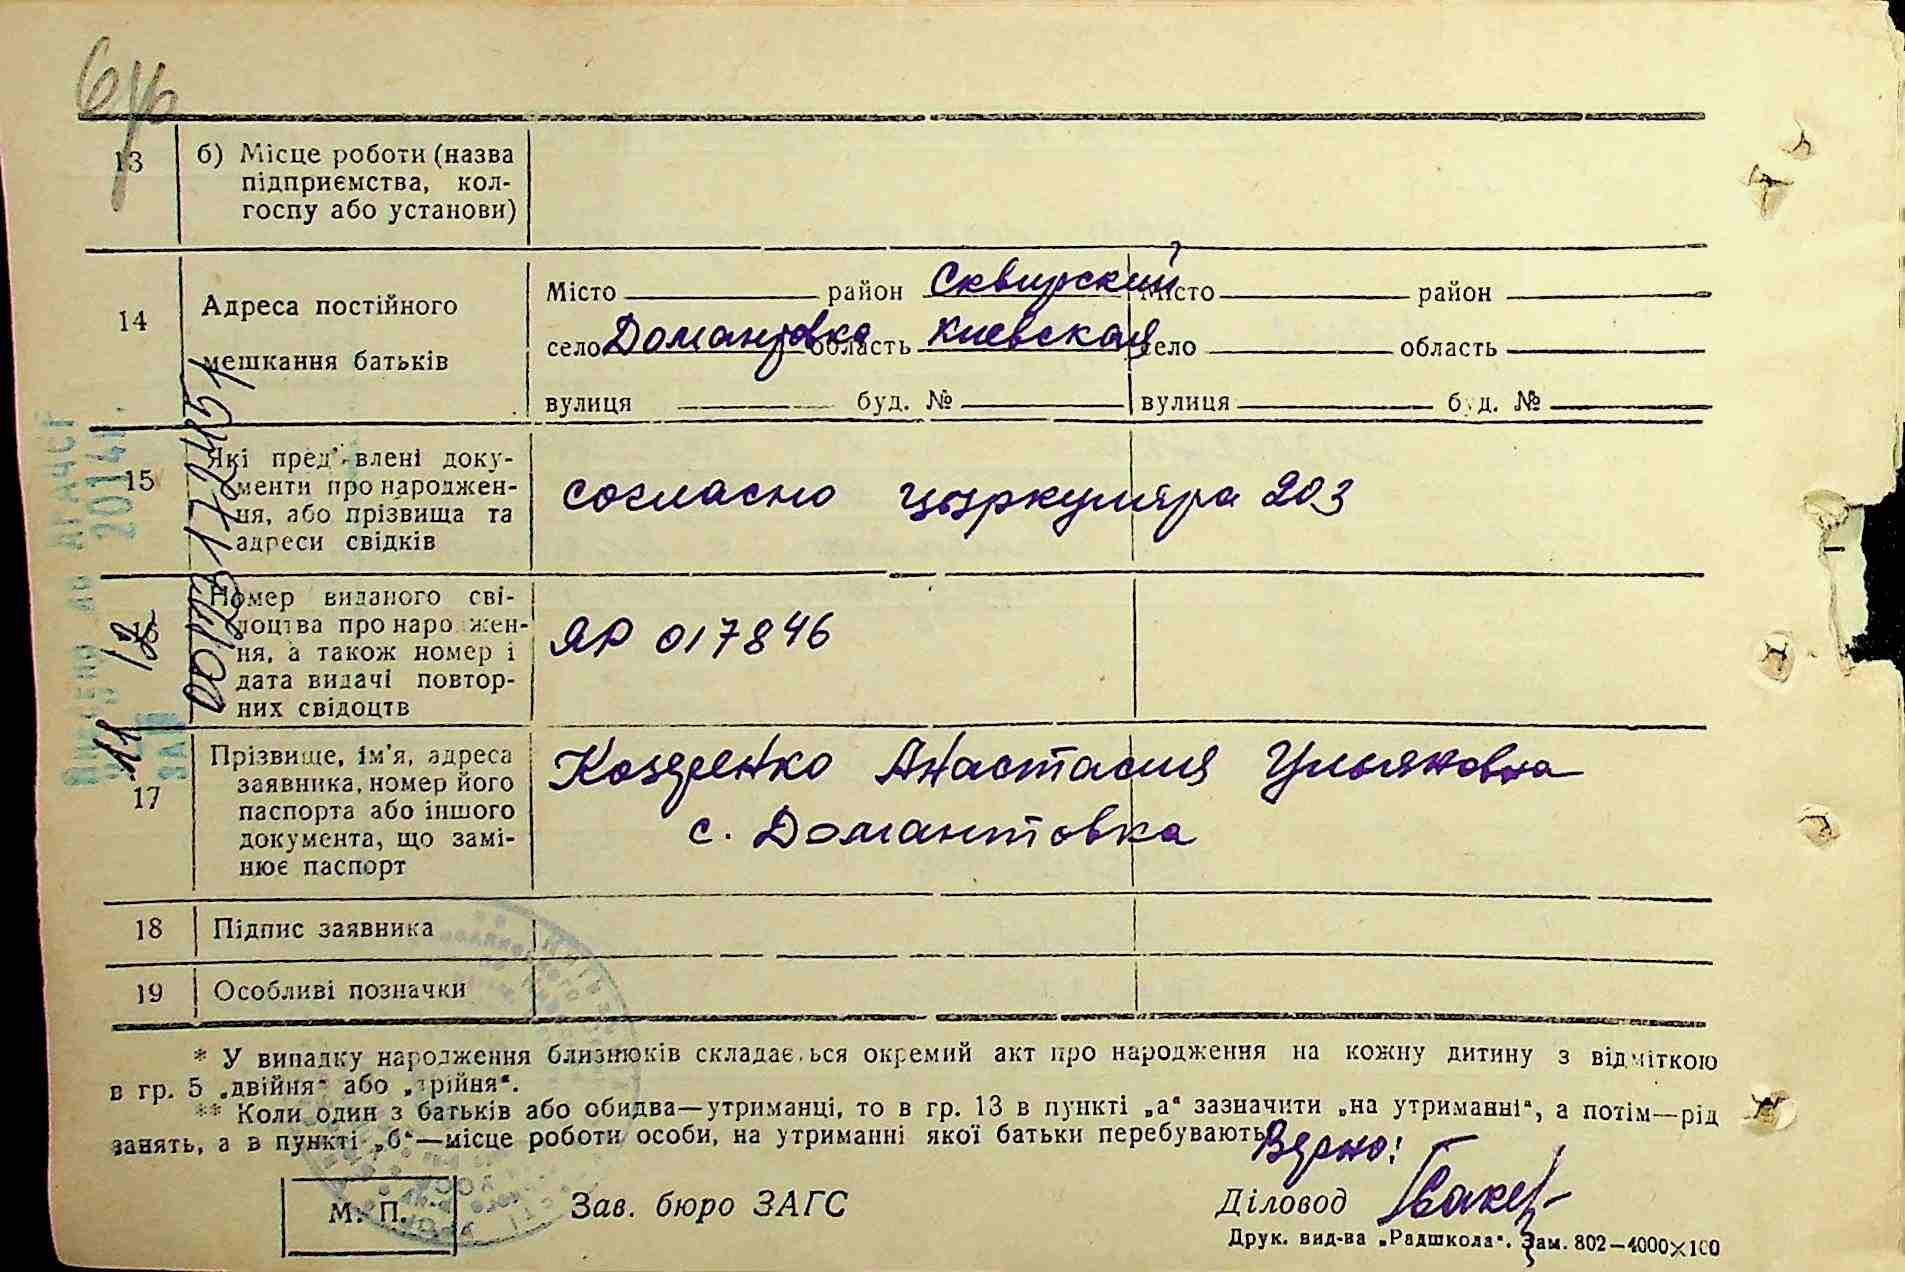 13 б) Місце роботи (назва
підприємства, кол-
госпу або установи)
14 Адреса постійного
мешкання батьків
Місто район Сквирский Місто район
село Домантовка область Киевская село область
вулиця буд. № вулиця буд. №
15 Які пред'явлені доку-
менти про народжен-
ня, або прізвища та
адреси свідків
согласно циркуляра 203
Номер виданого сві-
доцтва про народжен-
ня, а також номер і
дата видачі повтор-
них свідоцтв
ЯР 017846
17 Прізвище, ім'я, адреса
заявника, номер його
паспорта або іншого
документа, що замі-
нює паспорт
Анастасия Ульяновна
с. Домантовка
18 Підпис заявника
19 Особливі позначки
* У випадку народження близнюків складається окремий акт про народження на кожну дитину з відміткою
в гр. 5 „двійня“ або „трійня“.
** Коли один з батьків або обидва—утриманці, то в гр. 13 в пункті „а“ зазначити „на утриманні“, а потім—рід
занять, а в пункті „б“—місце роботи особи, на утриманні якої батьки перебувають.
Верно!
М. П. Зав. бюро ЗАГС Діловод
Друк. вид-ва „Радшкола“. Зам. 802—4000×100
2014
11 12